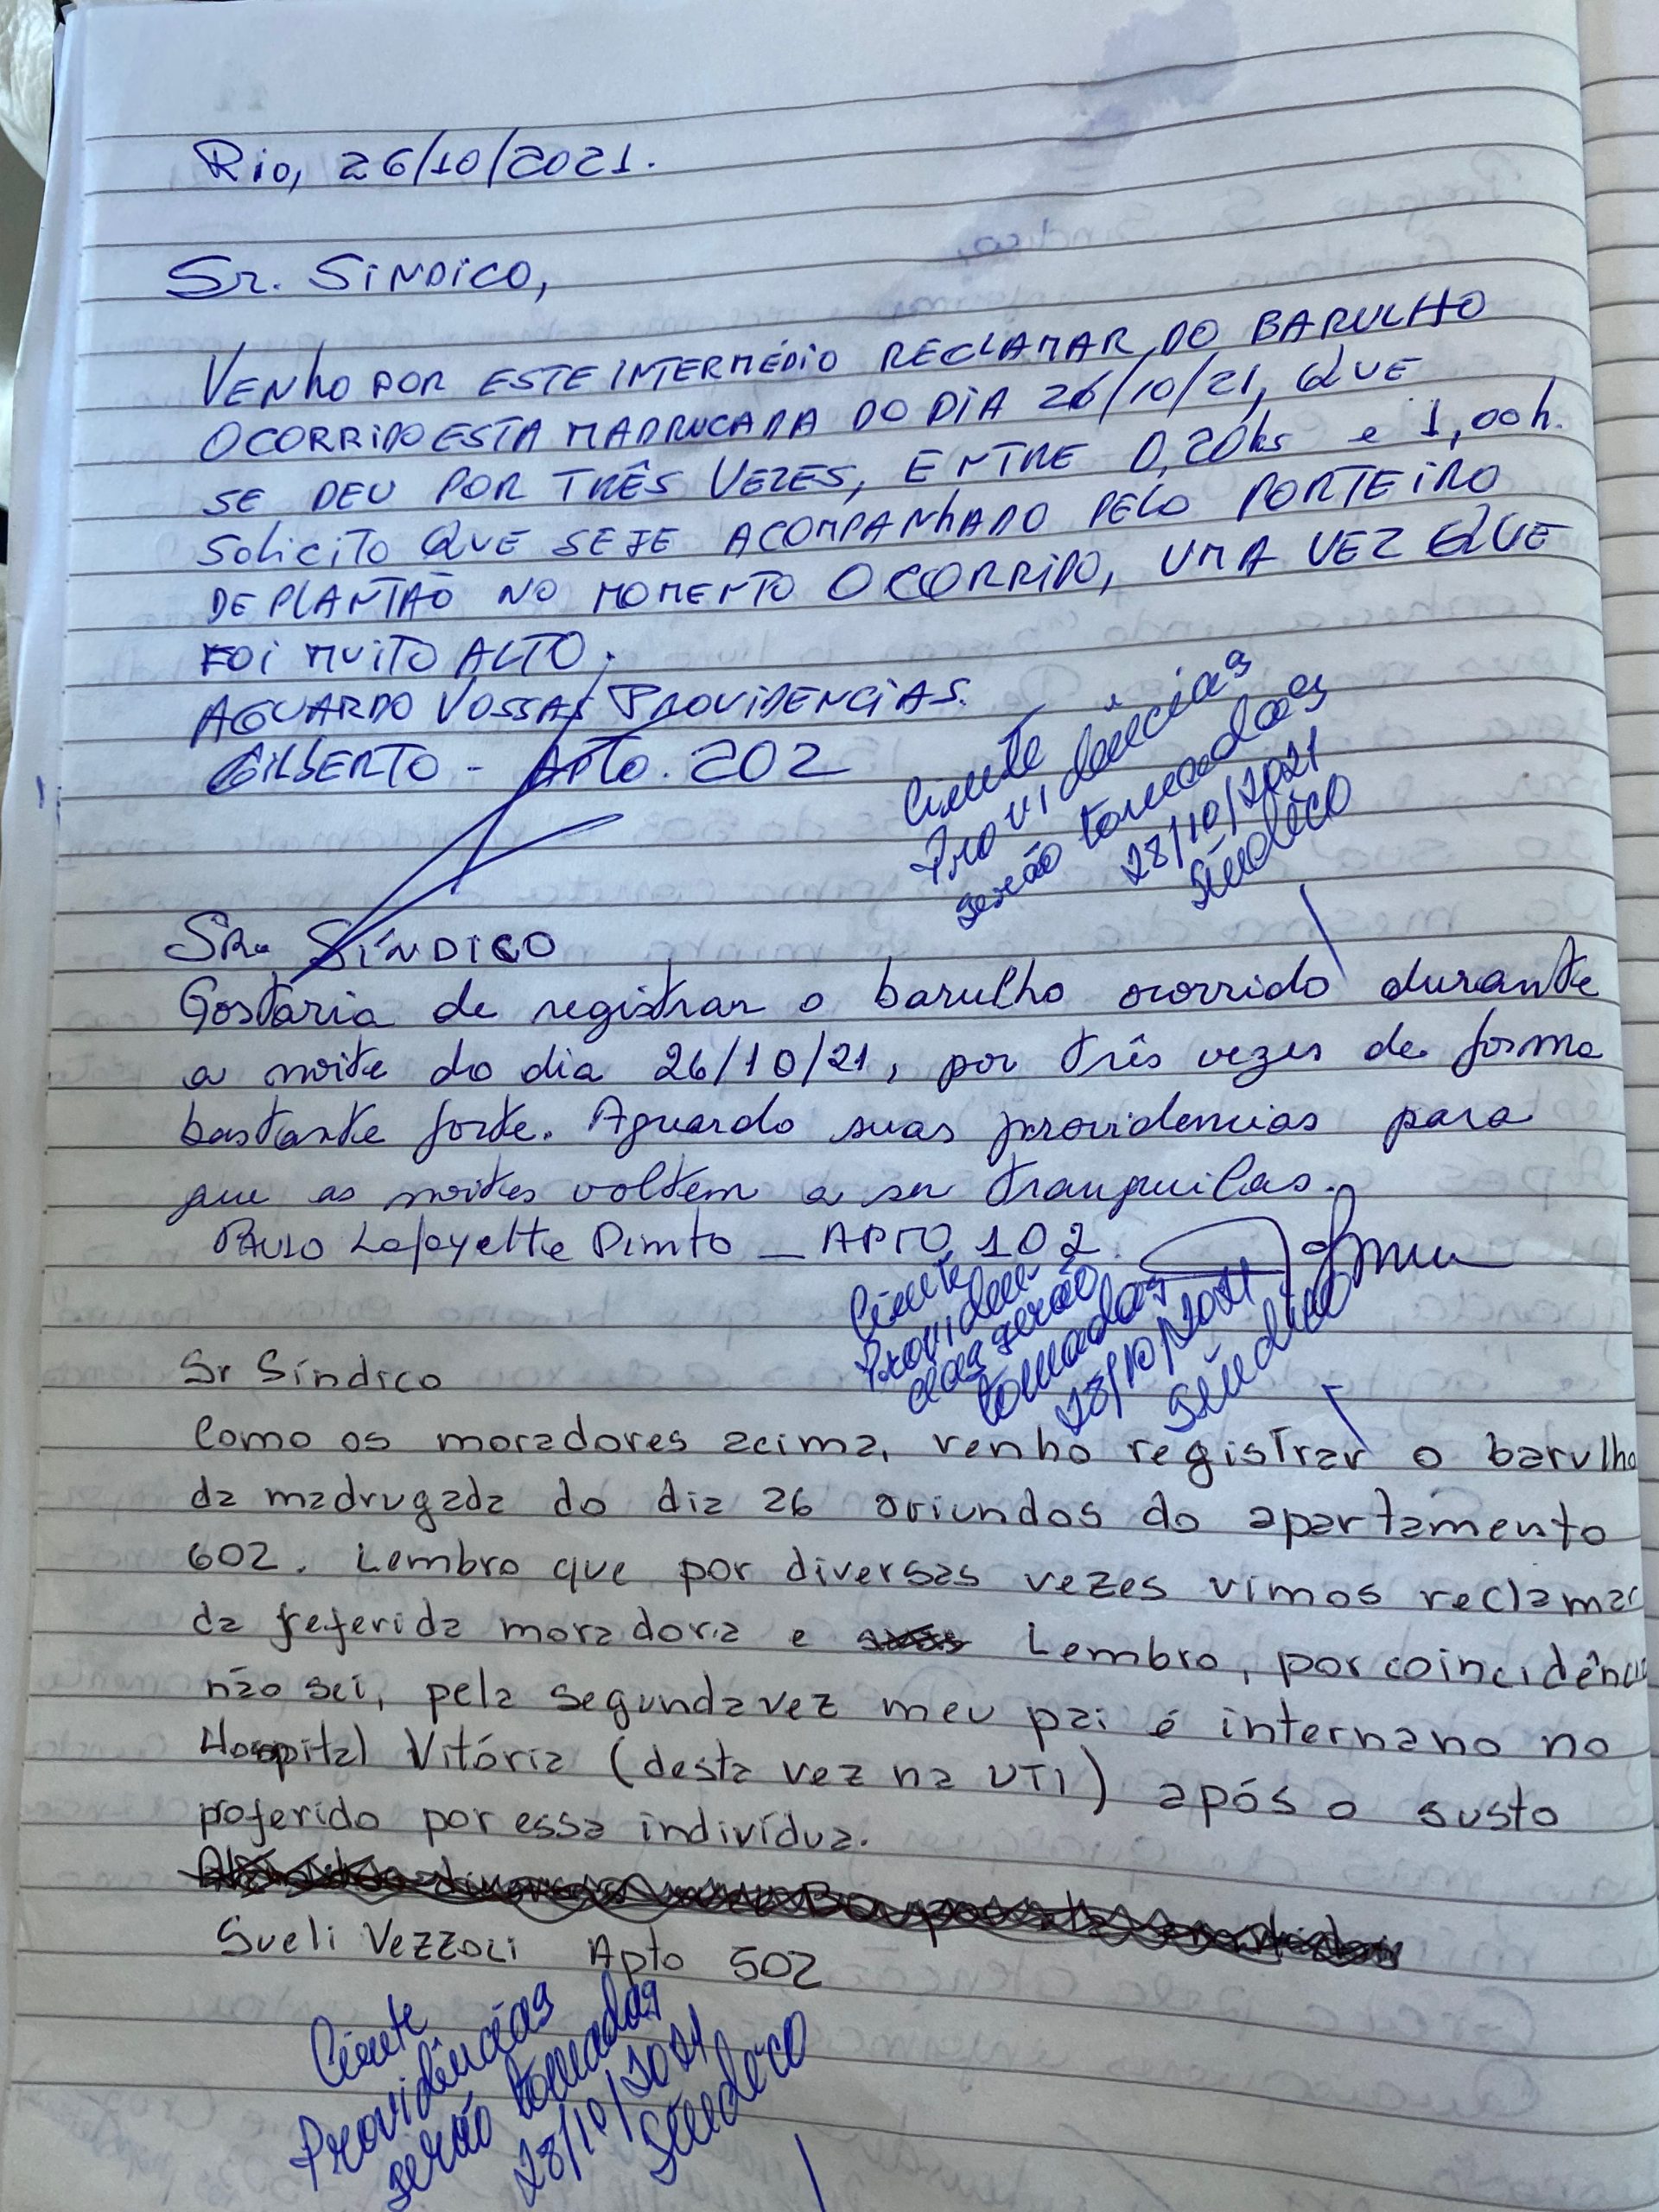 Rio, 26/10/2021.
Sr. SiNDiCO,
VENho POR ESTE INTERMÉDiO RECLAMAR DO BARULHO
OCORRiDO ESTA MADRUGADA DO DiA 26/10/21, QUE
SE DEU POR TRÊS VEZES, ENTRE 0,20hs e 1,00h.
SoliciTO QUE SEJE ACOMPANhADO PELO PORTEiRO
DE PLANTÃO NO MOMENTO OCORRiDO, UMA VEZ QUE
FOi MUiTO ALTO.
AGUARDO VOSSAS PROViDENCiAS.
GILBERTO - APTO. 202
Ciente
Providências
serão tomadas
28/10/2021
Síndico
SR. SÍNDICO
Gostaria de registrar o barulho ocorrido durante
a noite do dia 26/10/21, por três vezes de forma
bastante forte. Aguardo suas providencias para
que as noites voltem a ser tranquilas.
PAULO Lafayette Pinto - APTO 102.
Ciente
Providên
cias serão
tomadas
28/10/2021
Síndico
Sr Síndico
Como os moradores acima, venho registrar o barulho
da madrugada do dia 26 oriundos do apartamento
602. Lembro que por diversas vezes vimos reclamar
da referida moradora e Lembro, por coincidência
não sei, pela segunda vez meu pai é internano no
Hospital Vitória (desta vez na UTI) após o susto
poferido por essa indivídua.
Sueli Vezzoci Apto 502
Ciente
Providências
serão tomadas
28/10/2021
Síndico